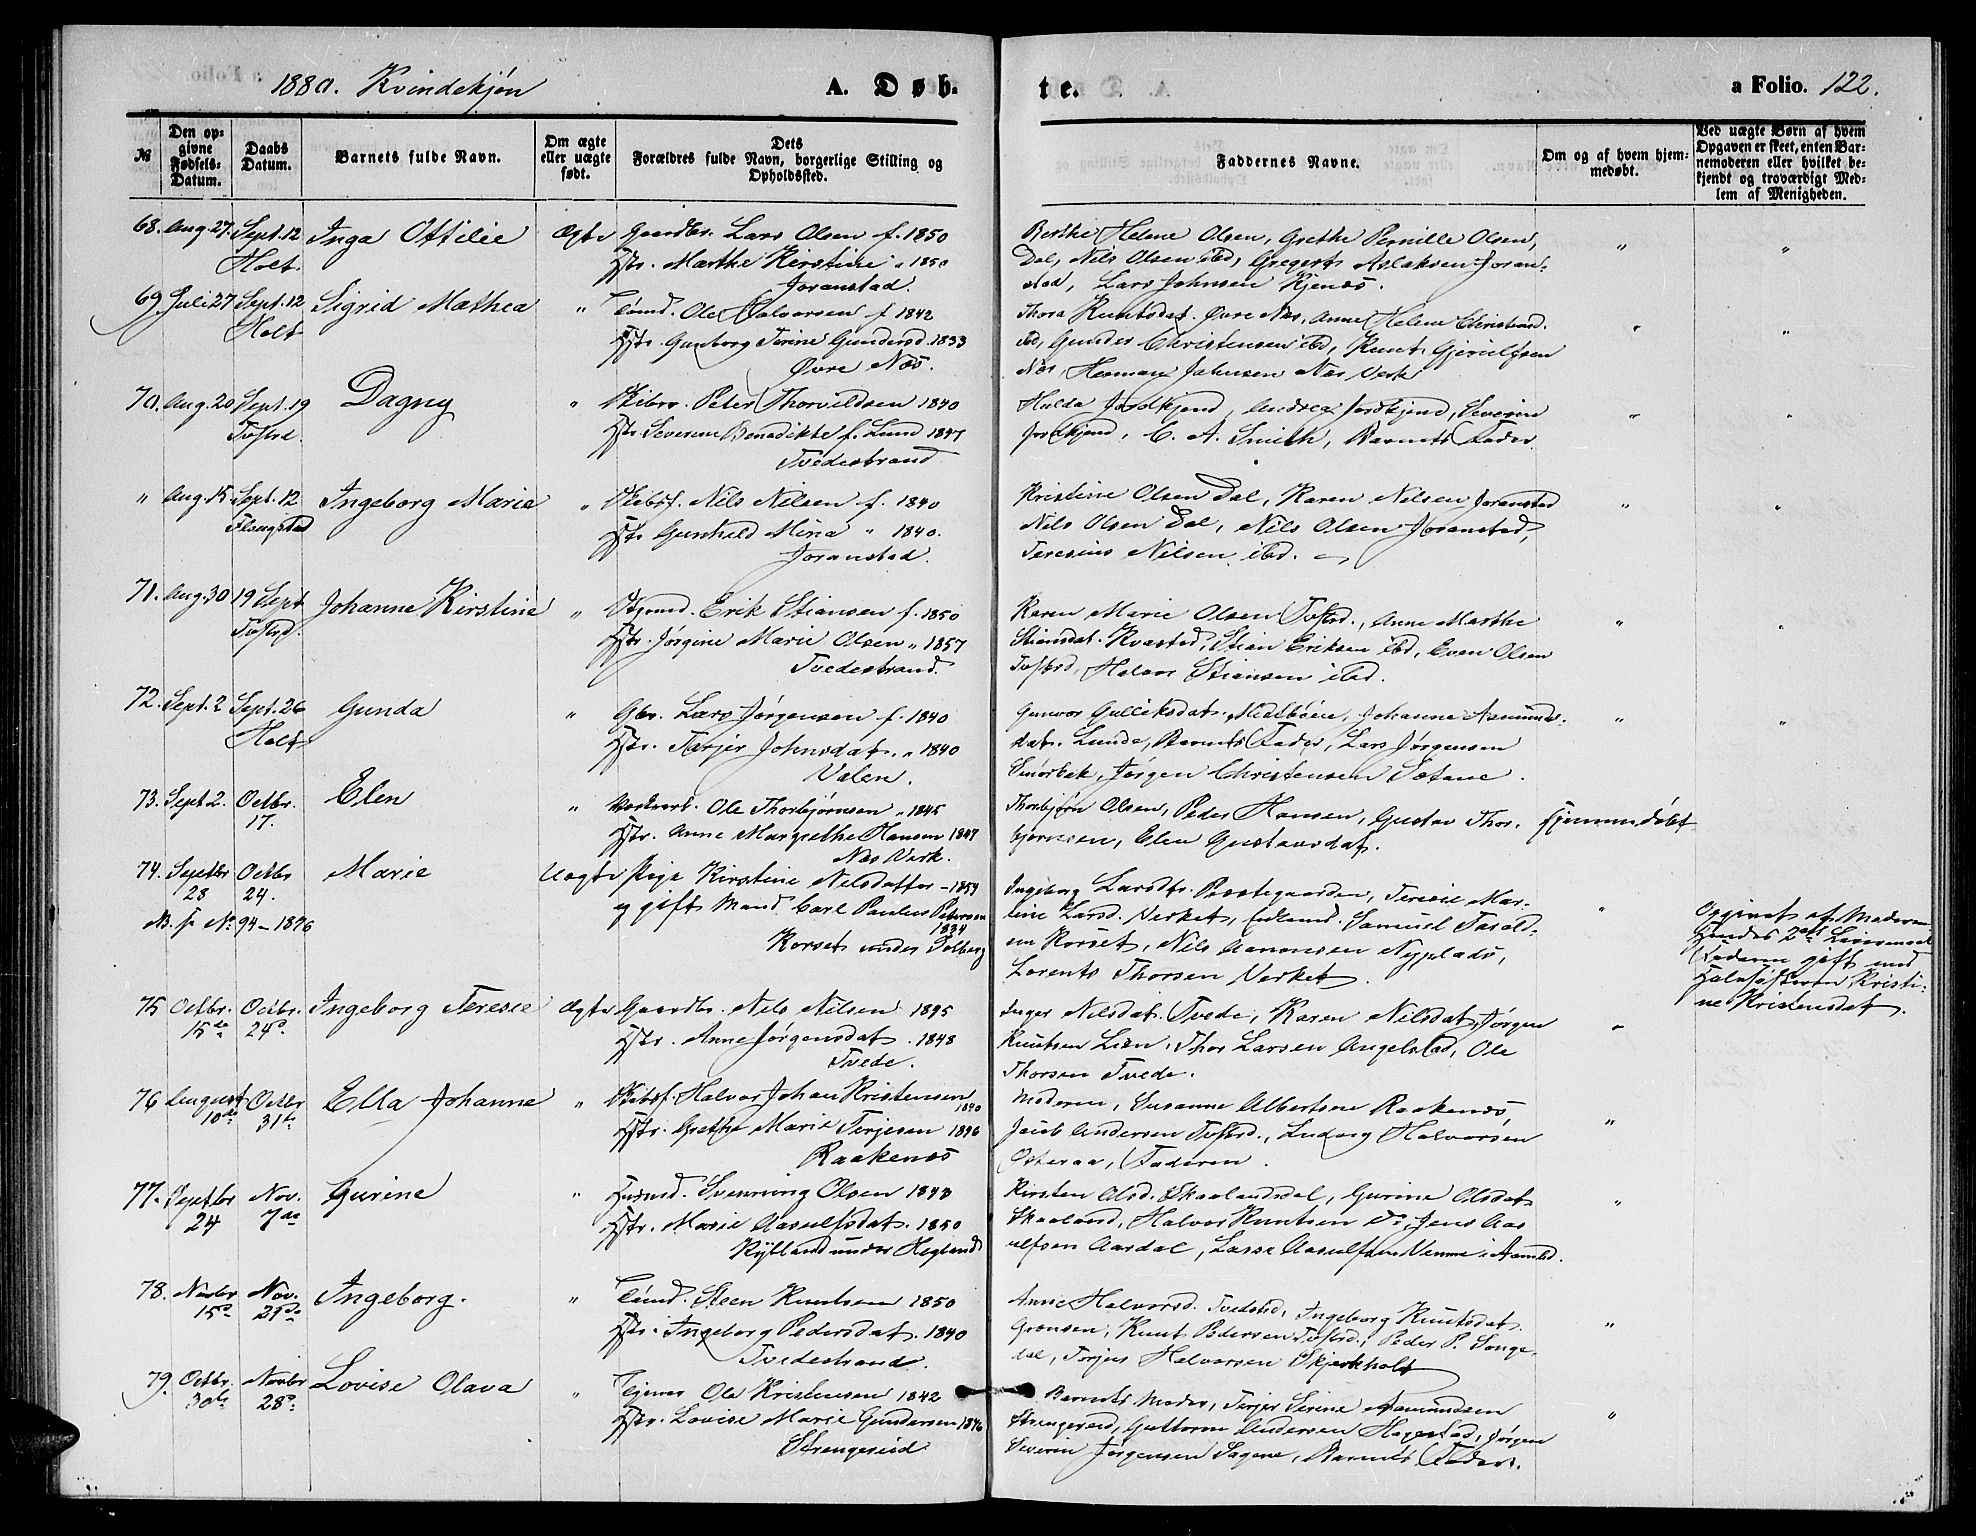 1880. Kvindekjøn
A. Døb-
te.
a Folio. 122.
№
Den op-
givne
Fødsels-
Datum.
Daabs
Datum.
Barnets fulde Navn.
Om ægte
eller uægte
født.
Dets
Forældres fulde Navn, borgerlige Stilling og
Opholdssted.
Faddernes Navne.
Om og af hvem hjem-
medøbt.
Ved uægte Børn af hvem
Opgaven er skeet, enten Bar-
nemoderen eller hvilket be-
kjendt og troværdigt Med-
lem af Menigheden.
68. Aug. 27. Sept. 12 Inga Ottilie Ægte Gaardbr. Lars Olsen f. 1850
Holt. Hstr. Marthe Kirstine " 1850
Joranstad.
Berthe Helene Olsen, Grethe Pernille Olsen,
Dal, Nils Olsen ibd, Gregert Aslaksen Joran-
stad, Lars Johnsen Kjenæs. " "
69. Juli 27 Sept. 12 Sigrid Mathea " Tømd. Ole Halvorsen f 1842
Holt Hstr. Gunborg Terine Gundersd. 1833
Øvre Næs.
Thora Knutsdat. Øvre Næs, Anne Helene Christensd.
ibd, Gunder Christensen ibd, Knut Gjeruldsen
Næs, Herman Jakensen Næs Verk " "
70. Aug. 20 Sept. 19 Dagny " Skibsr. Peter Thorvildsen 1840
Tvstrd. Hstr Severine Benedikte f. Lund 1847
Tvedestrand
Hulda Jordkjend, Andrea Jordkjend, Severin
Jordkjend, C. A. Smith, Barnets Fader. " "
" Aug. 15 Sept. 12 Ingeborg Marie " Skibsf. Nils Nilsen f. 1840
Flougstad Hstr Gunhild Mina " 1840.
Joranstad.
Kristine Olsen Dal, Karen Nilsen Joranstad
Nils Olsen Dal, Nils Olsen Joranstad,
Teresius Nilsen ibd. " "
71. Aug. 30 19 Sept Johanne Kirstine " Erik Stiansen f. 1850
Tvstrd. Hstr. Jørgine Marie Olsen " 1857
Tvedestrand.
Karen Marie Olsen Tvstrd., Anne Marthe
Stiansdat. Kvastad, Stian Eriksen ibd, Even Olsen
Tvstrd, Halvor Stiansen ibd. " "
72. Sept. 2 Sept. 26 Gunda " Gbr. Lars Jørgensen f. 1840
Holt Hstr. Terjer Johnsdat. " 1840
Valen.
Gunvor Gulliksdat. Midtbøen, Johanne Asmunds-
dat. Lunde, Barnets Fader, Lars Jørgensen
Smørbek, Jørgen Christensen Sætane. " "
73. Sept 2. Octbr. Elen " Ole Thorbjørnsen " 1845
17. Hstr. Anne Margrethe Hansen 1847
Næs Verk.
Thorbjørn Olsen, Peder Hansen, Gustav Thor- Hjemmedøbt
bjørnsen, Elen Gustavsdat.
74. Septbr Octbr Marie Uægte Pige Kirstine Nilsdatter - 1854
23 24. og gift Mand Carl Paulus Petersen
1834
NB. fr No. 94 - 1876 Korset under Solberg
Ingeborg Larsdtr. Prestegaarden, Teresie Mar-
tine Larsd. Verket, Samuel Tarald-
sen Korset, Nils Aanonsen Nyplads,
Lorents Thorsen Verket. "
Opgivet af Moderen
Hendes 2det Leiermaal
Faderen gift med
Halvsøsteren Kristi-
ne Kristensdat.
75 Octbr. Octbr. Ingeborg Teresie Ægte Gaardbr. Nils Nilsen 1845
15de 24de Hstr. Anne Jørgensdat. 1848
Tvede.
Inger Nilsdat. Tvede, Karen Nilsdat, Jørgen
Knutsen Lien, Thor Larsen Angelstad, Ole
Thorsen Tvede. "
76 August Octbr Ella Johanne " Skibsf. Halvor Johan Kristensen
1840
10de 31te Hstr. Grethe Marie Terjesen 1846
Raakenæs
Moderen, Susanne Albertsen Raakenæs
Jacob Andersen Tvstrd., Ludvig Halvorsen
Osteraa, Faderen. "
77. Septbr Nov. Gurine " Husmd. Svenning Olsen 1843
24 7de Hstr. Marie Aasulfsdat. 1850
Rylland under Hegland
Kirsten Olsd. Skaalandsdal, Gurine Olsdat
Skaaland, Halvor Knutsen do, Jens Aas-
ulfsen Aardal, Lasse Aasulfsen Venme i Aamlid. "
78. Novbr Nov. Ingeborg. " Tømd. Steen Knutsen 1850
15de 21de Hstr. Ingeborg Pedersdat. 1840
Tvedestrand.
Anne Halvorsd. Tvedestd, Ingeborg Knutsdat.
Grønsen, Knut Pedersen Tvstrd., Peder P. Songe-
dal, Terjus Halvorsen Skjerkholt "
79. Octbr. Novbr Lovise Olava " Ejener Ole Kristensen 1842
30de 28de Hstr. Lovise Marie Gundersen 1846
Strengereid
Barnets Moder, Terjer Serine Asmundsen
Strengereid, Guttorm Andersen Hagestad, Jørgen
Severin Jørgensen Sagene, Barnets Fader. "